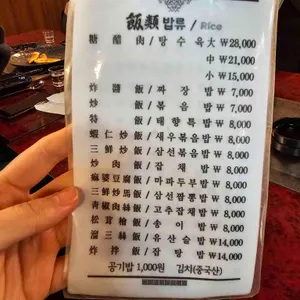 飯類 밥류 / Rice
糖醋肉 / 탕수육 大 ₩28,000
中 ₩21,000
小 ₩15,000
炸醬飯 / 짜장밥 ₩7,000
炒飯 / 볶음밥 ₩7,000
特飯 / 태향특밥 ₩8,000
蝦仁炒飯 / 새우볶음밥 ₩8,000
三鮮炒飯 / 삼선볶음밥 ₩8,000
炒肉飯 / 잡채밥 ₩8,000
麻婆豆腐飯 / 마파두부밥 ₩8,000
三鮮炒馬飯 / 삼선짬뽕밥 ₩8,000
靑椒肉絲飯 / 고추잡채밥 ₩8,000
松茸燴飯 / 송이밥 ₩8,000
溜三絲飯 / 유산슬밥 ₩14,000
炸拌飯 / 잡탕밥 ₩14,000
공기밥 1,000원 김치(중국산)